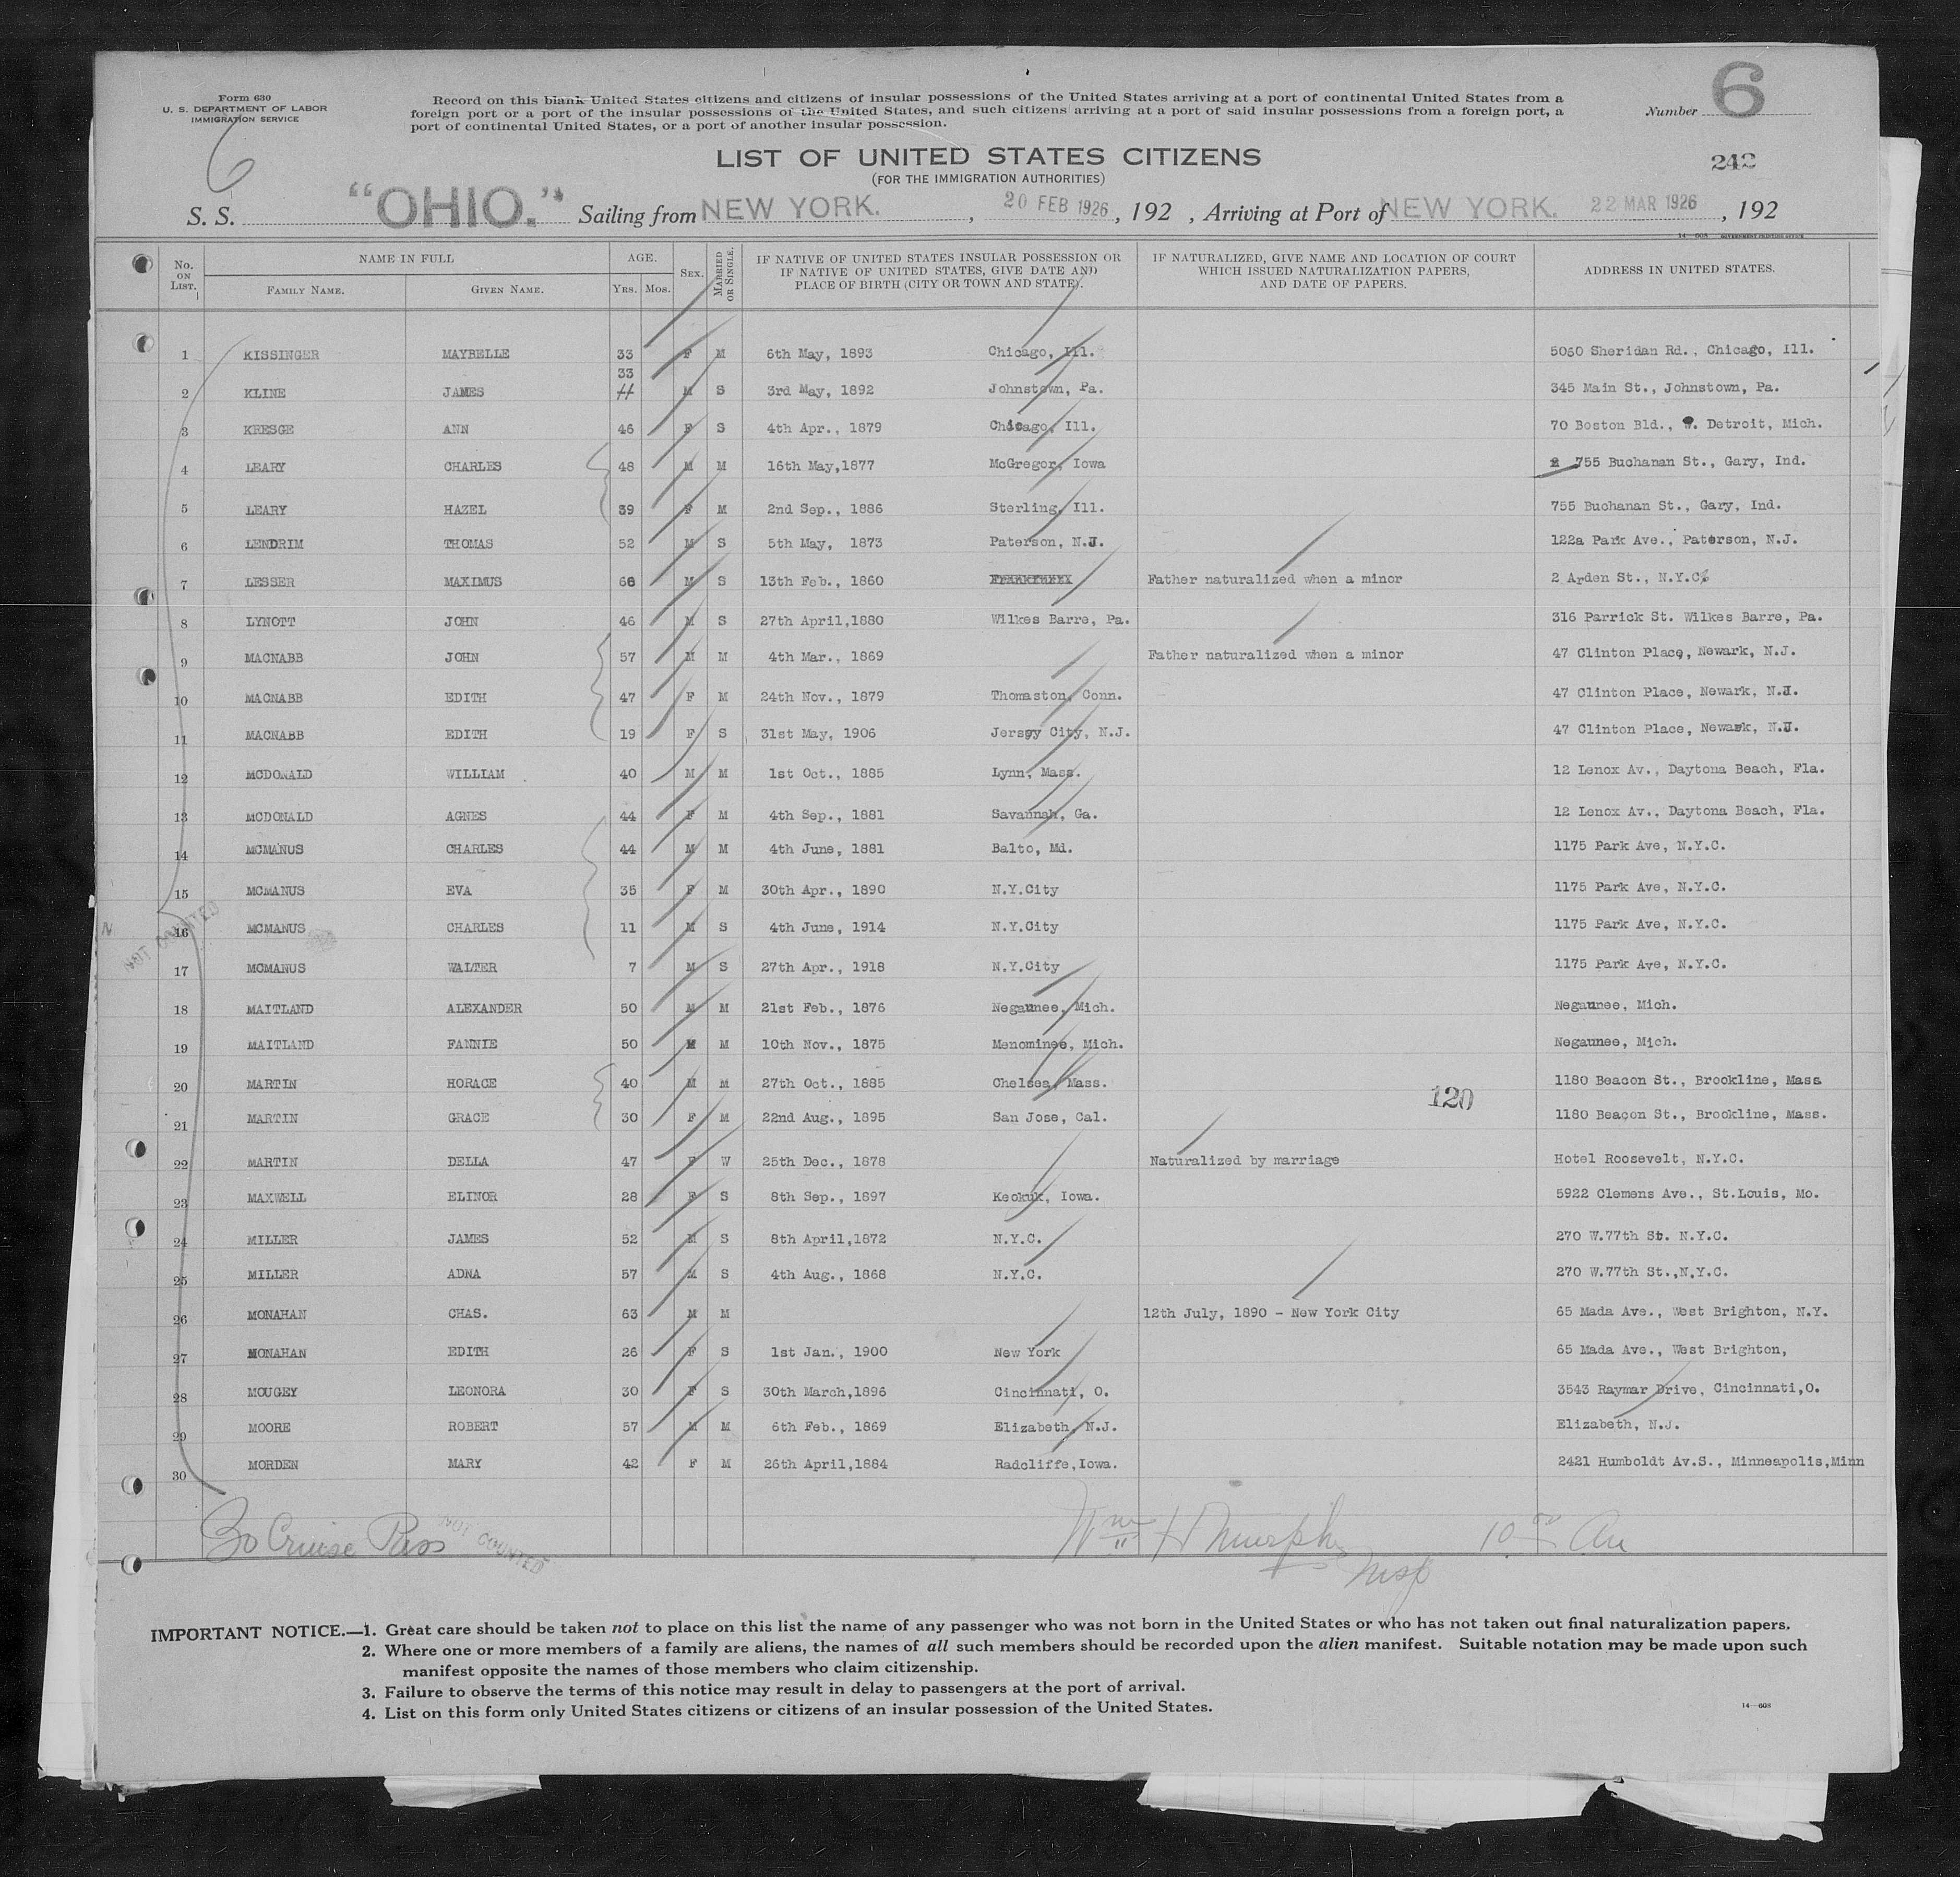 Form 630
U. S. DEPARTMENT OF LABOR
IMMIGRATION SERVICE
Record on this blank United States citizens and citizens of insular possessions of the United States arriving at a port of continental United States from a
foreign port or a port of the insular possessions of the United States, and such citizens arriving at a port of said insular possessions from a foreign port, a
port of continental United States, or a port of another insular possession.
Number 6
6
LIST OF UNITED STATES CITIZENS
(FOR THE IMMIGRATION AUTHORITIES)
242
S. S. "OHIO." Sailing from NEW YORK. , 20 FEB 1926 , 192 , Arriving at Port of NEW YORK. 22 MAR 1926 , 192
14—608 GOVERNMENT PRINTING OFFICE
No. ON LIST. NAME IN FULL FAMILY NAME. GIVEN NAME. AGE. YRS. MOS. SEX. MARRIED OR SINGLE. IF NATIVE OF UNITED STATES INSULAR POSSESSION OR IF NATIVE OF UNITED STATES, GIVE DATE AND PLACE OF BIRTH (CITY OR TOWN AND STATE). IF NATURALIZED, GIVE NAME AND LOCATION OF COURT WHICH ISSUED NATURALIZATION PAPERS, AND DATE OF PAPERS. ADDRESS IN UNITED STATES.
1 KISSINGER MAYBELLE 33 F M 6th May, 1893 Chicago, Ill. 5050 Sheridan Rd., Chicago, Ill.
2 KLINE JAMES 33 M S 3rd May, 1892 Johnstown, Pa. 345 Main St., Johnstown, Pa.
3 KRESGE ANN 46 F S 4th Apr., 1879 Chicago, Ill. 70 Boston Bld., Detroit, Mich.
4 LEARY CHARLES 48 M M 16th May,1877 McGregor, Iowa 755 Buchanan St., Gary, Ind.
5 LEARY HAZEL 39 F M 2nd Sep., 1886 Sterling, Ill. 755 Buchanan St., Gary, Ind.
6 LENDRIM THOMAS 52 M S 5th May, 1873 Paterson, N.J. 122a Park Ave., Paterson, N.J.
7 LESSER MAXIMUS 66 M S 13th Feb., 1860 Father naturalized when a minor 2 Arden St., N.Y.C.
8 LYNOTT JOHN 46 M S 27th April,1880 Wilkes Barre, Pa. 316 Parrick St. Wilkes Barre, Pa.
9 MACNABB JOHN 57 M M 4th Mar., 1869 Father naturalized when a minor 47 Clinton Place, Newark, N.J.
10 MACNABB EDITH 47 F M 24th Nov., 1879 Thomaston, Conn. 47 Clinton Place, Newark, N.J.
11 MACNABB EDITH 19 F S 31st May, 1906 Jersey City, N.J. 47 Clinton Place, Newark, N.J.
12 MCDONALD WILLIAM 40 M M 1st Oct., 1885 Lynn, Mass. 12 Lenox Av., Daytona Beach, Fla.
13 MCDONALD AGNES 44 F M 4th Sep., 1881 Savannah, Ga. 12 Lenox Av., Daytona Beach, Fla.
14 MCMANUS CHARLES 44 M M 4th June, 1881 Balto, Md. 1175 Park Ave, N.Y.C.
15 MCMANUS EVA 35 F M 30th Apr., 1890 N.Y.City 1175 Park Ave, N.Y.C.
NOT COUNTED
16 MCMANUS CHARLES 11 M S 4th June, 1914 N.Y.City 1175 Park Ave, N.Y.C.
17 MCMANUS WALTER 7 M S 27th Apr., 1918 N.Y.City 1175 Park Ave, N.Y.C.
18 MAITLAND ALEXANDER 50 M M 21st Feb., 1876 Negaunee, Mich. Negaunee, Mich.
19 MAITLAND FANNIE 50 M M 10th Nov., 1875 Menominee, Mich. Negaunee, Mich.
20 MARTIN HORACE 40 M M 27th Oct., 1885 Chelsea, Mass. 1180 Beacon St., Brookline, Mass
120
21 MARTIN GRACE 30 F M 22nd Aug., 1895 San Jose, Cal. 1180 Beacon St., Brookline, Mass.
22 MARTIN DELLA 47 F W 25th Dec., 1878 Naturalized by marriage Hotel Roosevelt, N.Y.C.
23 MAXWELL ELINOR 28 F S 8th Sep., 1897 Keokuk, Iowa. 5922 Clemens Ave., St.Louis, Mo.
24 MILLER JAMES 52 M S 8th April,1872 N.Y.C. 270 W.77th St. N.Y.C.
25 MILLER ADNA 57 M S 4th Aug., 1868 N.Y.C. 270 W.77th St.,N.Y.C.
26 MONAHAN CHAS. 63 M M 12th July, 1890 - New York City 65 Mada Ave., West Brighton, N.Y.
27 MONAHAN EDITH 26 F S 1st Jan., 1900 New York 65 Mada Ave., West Brighton,
28 MOUGEY LEONORA 30 F S 30th March,1896 Cincinnati, O. 3543 Raymar Drive, Cincinnati,O.
29 MOORE ROBERT 57 M M 6th Feb., 1869 Elizabeth, N.J. Elizabeth, N.J.
30 MORDEN MARY 42 F M 26th April,1884 Radcliffe,Iowa. 2421 Humboldt Av.S., Minneapolis,Minn
30 Cruise Pass NOT COUNTED Wm H Murphy Insp
IMPORTANT NOTICE.—1. Great care should be taken not to place on this list the name of any passenger who was not born in the United States or who has not taken out final naturalization papers.
2. Where one or more members of a family are aliens, the names of all such members should be recorded upon the alien manifest. Suitable notation may be made upon such
manifest opposite the names of those members who claim citizenship.
3. Failure to observe the terms of this notice may result in delay to passengers at the port of arrival.
4. List on this form only United States citizens or citizens of an insular possession of the United States.
14—608